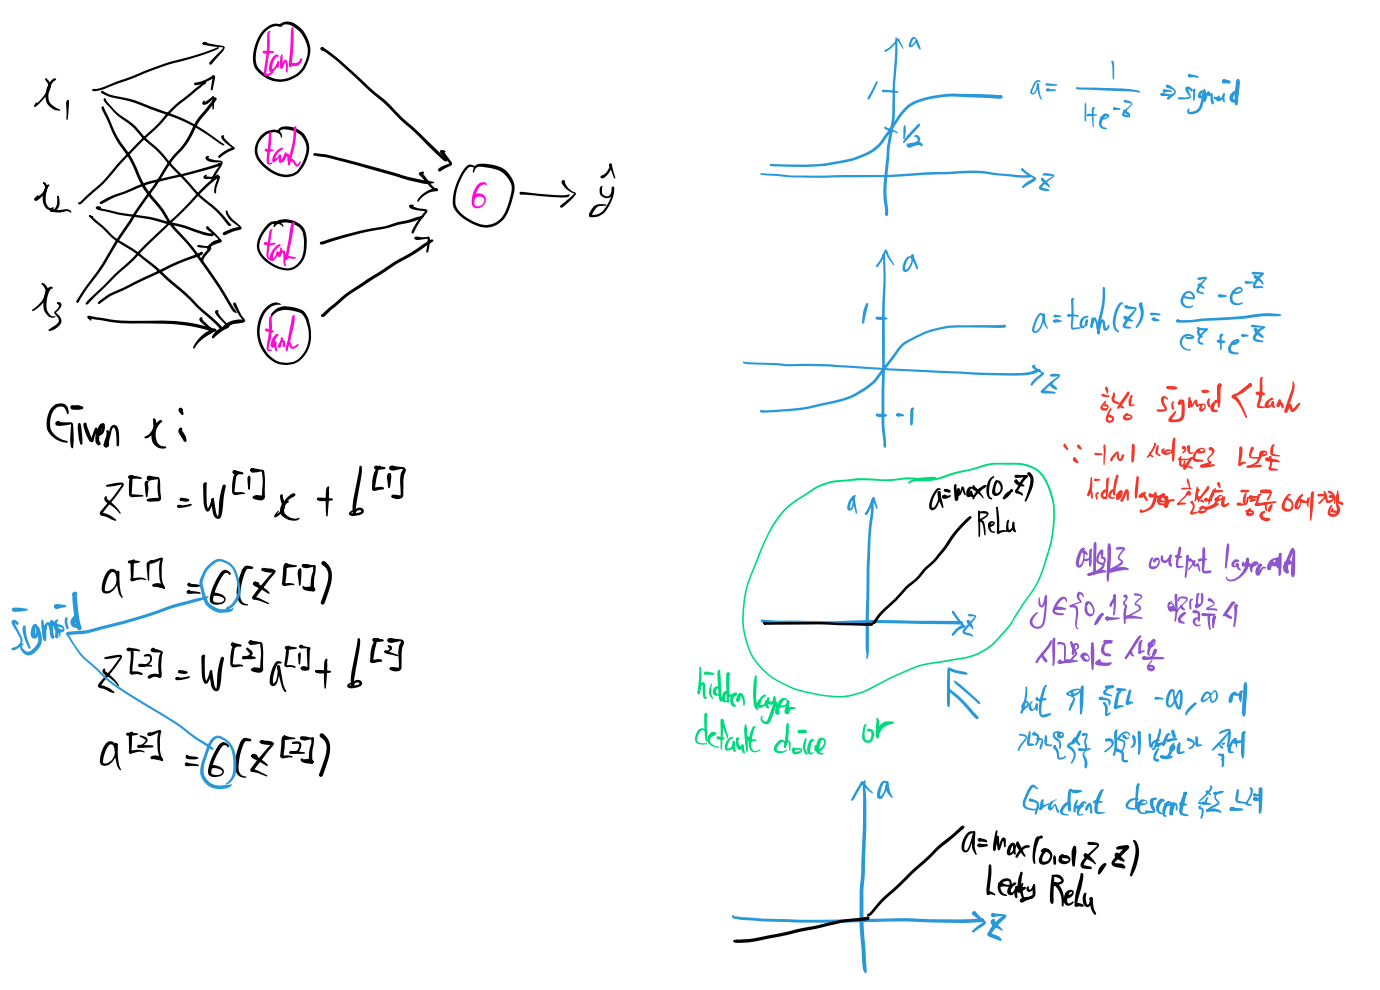 x₁
x₂
x₃
tanh
tanh
tanh
tanh
6
ŷ
Given x:
z[1] = W[1]x + b[1]
a[1] = 6(z[1])
sigmoid
z[2] = W[2]a[1] + b[2]
a[2] = 6(z[2])
a
1
1/2
z
a = 1/(1+e^-z) ⇒ sigmoid
a
1
-1
z
a = tanh(z) = (e^z - e^-z)/(e^z + e^-z)
항상 sigmoid < tanh
∵ -1~1 사이 값으로 나오는
hidden layer 평균 0에
a
z
a = max(0, z)
ReLu
hidden layer
default choice or
예외로 output layer에서
y ∈ {0, 1}로 이진분류시
시그모이드 사용
but 위 둘다 -∞, ∞에
가까울수록 기울기 변화가
Gradient descent 속도 느려
a
z
a = max(0.01z, z)
Leaky ReLu